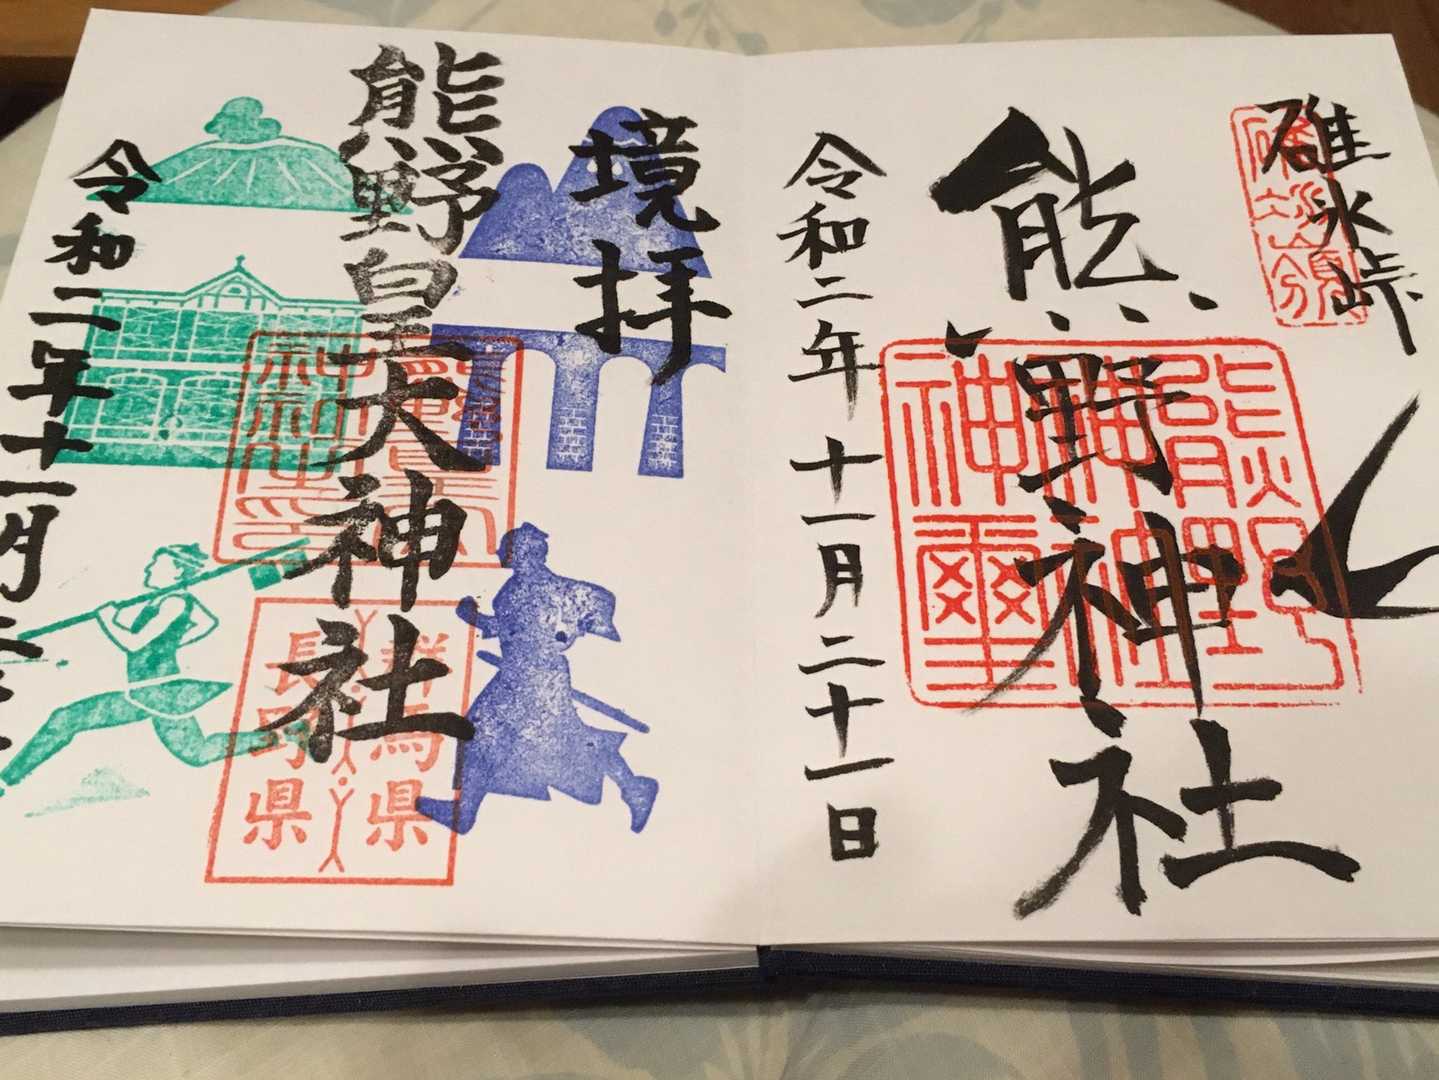 碓氷峠
熊野神社
熊野
神社
神璽
令和二年十一月二十一日
境拝
熊野皇大神社
群馬県
長野県
令和二年十一月二